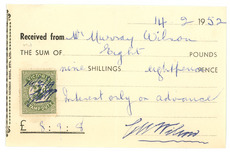 14 9 1952
Received from Mr Murray Wilson
THE SUM OF Eight POUNDS
nine SHILLINGS eightpence PENCE
Interest only on advance
£ 8 : 9 : 8